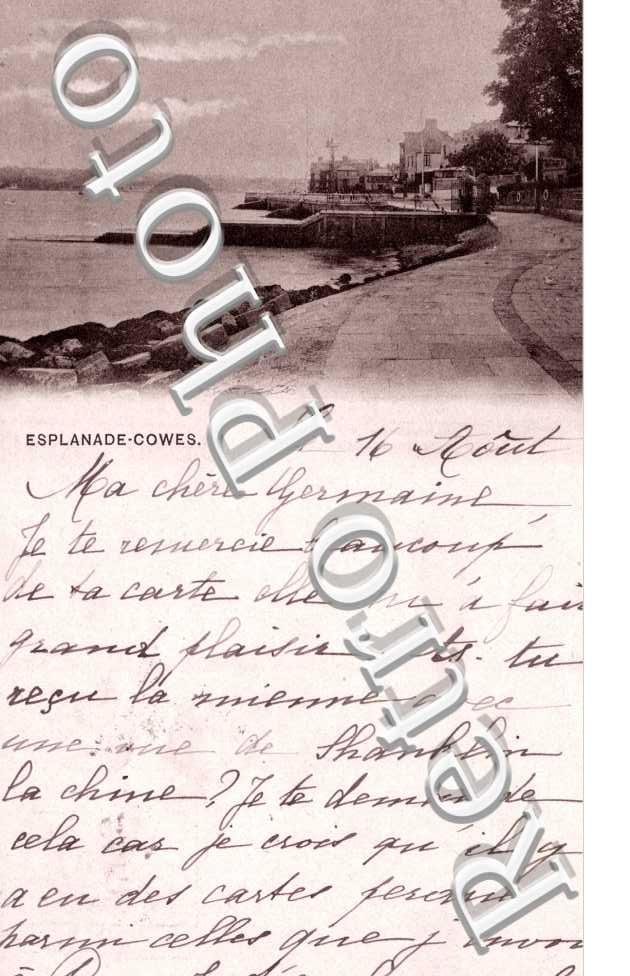 Photo Retro
ESPLANADE-COWES.
16 Août
Ma chère Germaine
Je te remercie beaucoup
de ta carte elle m'a fait
grand plaisir tu
reçu la mienne avec
une vue de Shanklin
la chine? Je te demande
cela car je crois qu'il y
a eu des cartes
parmi celles que j'